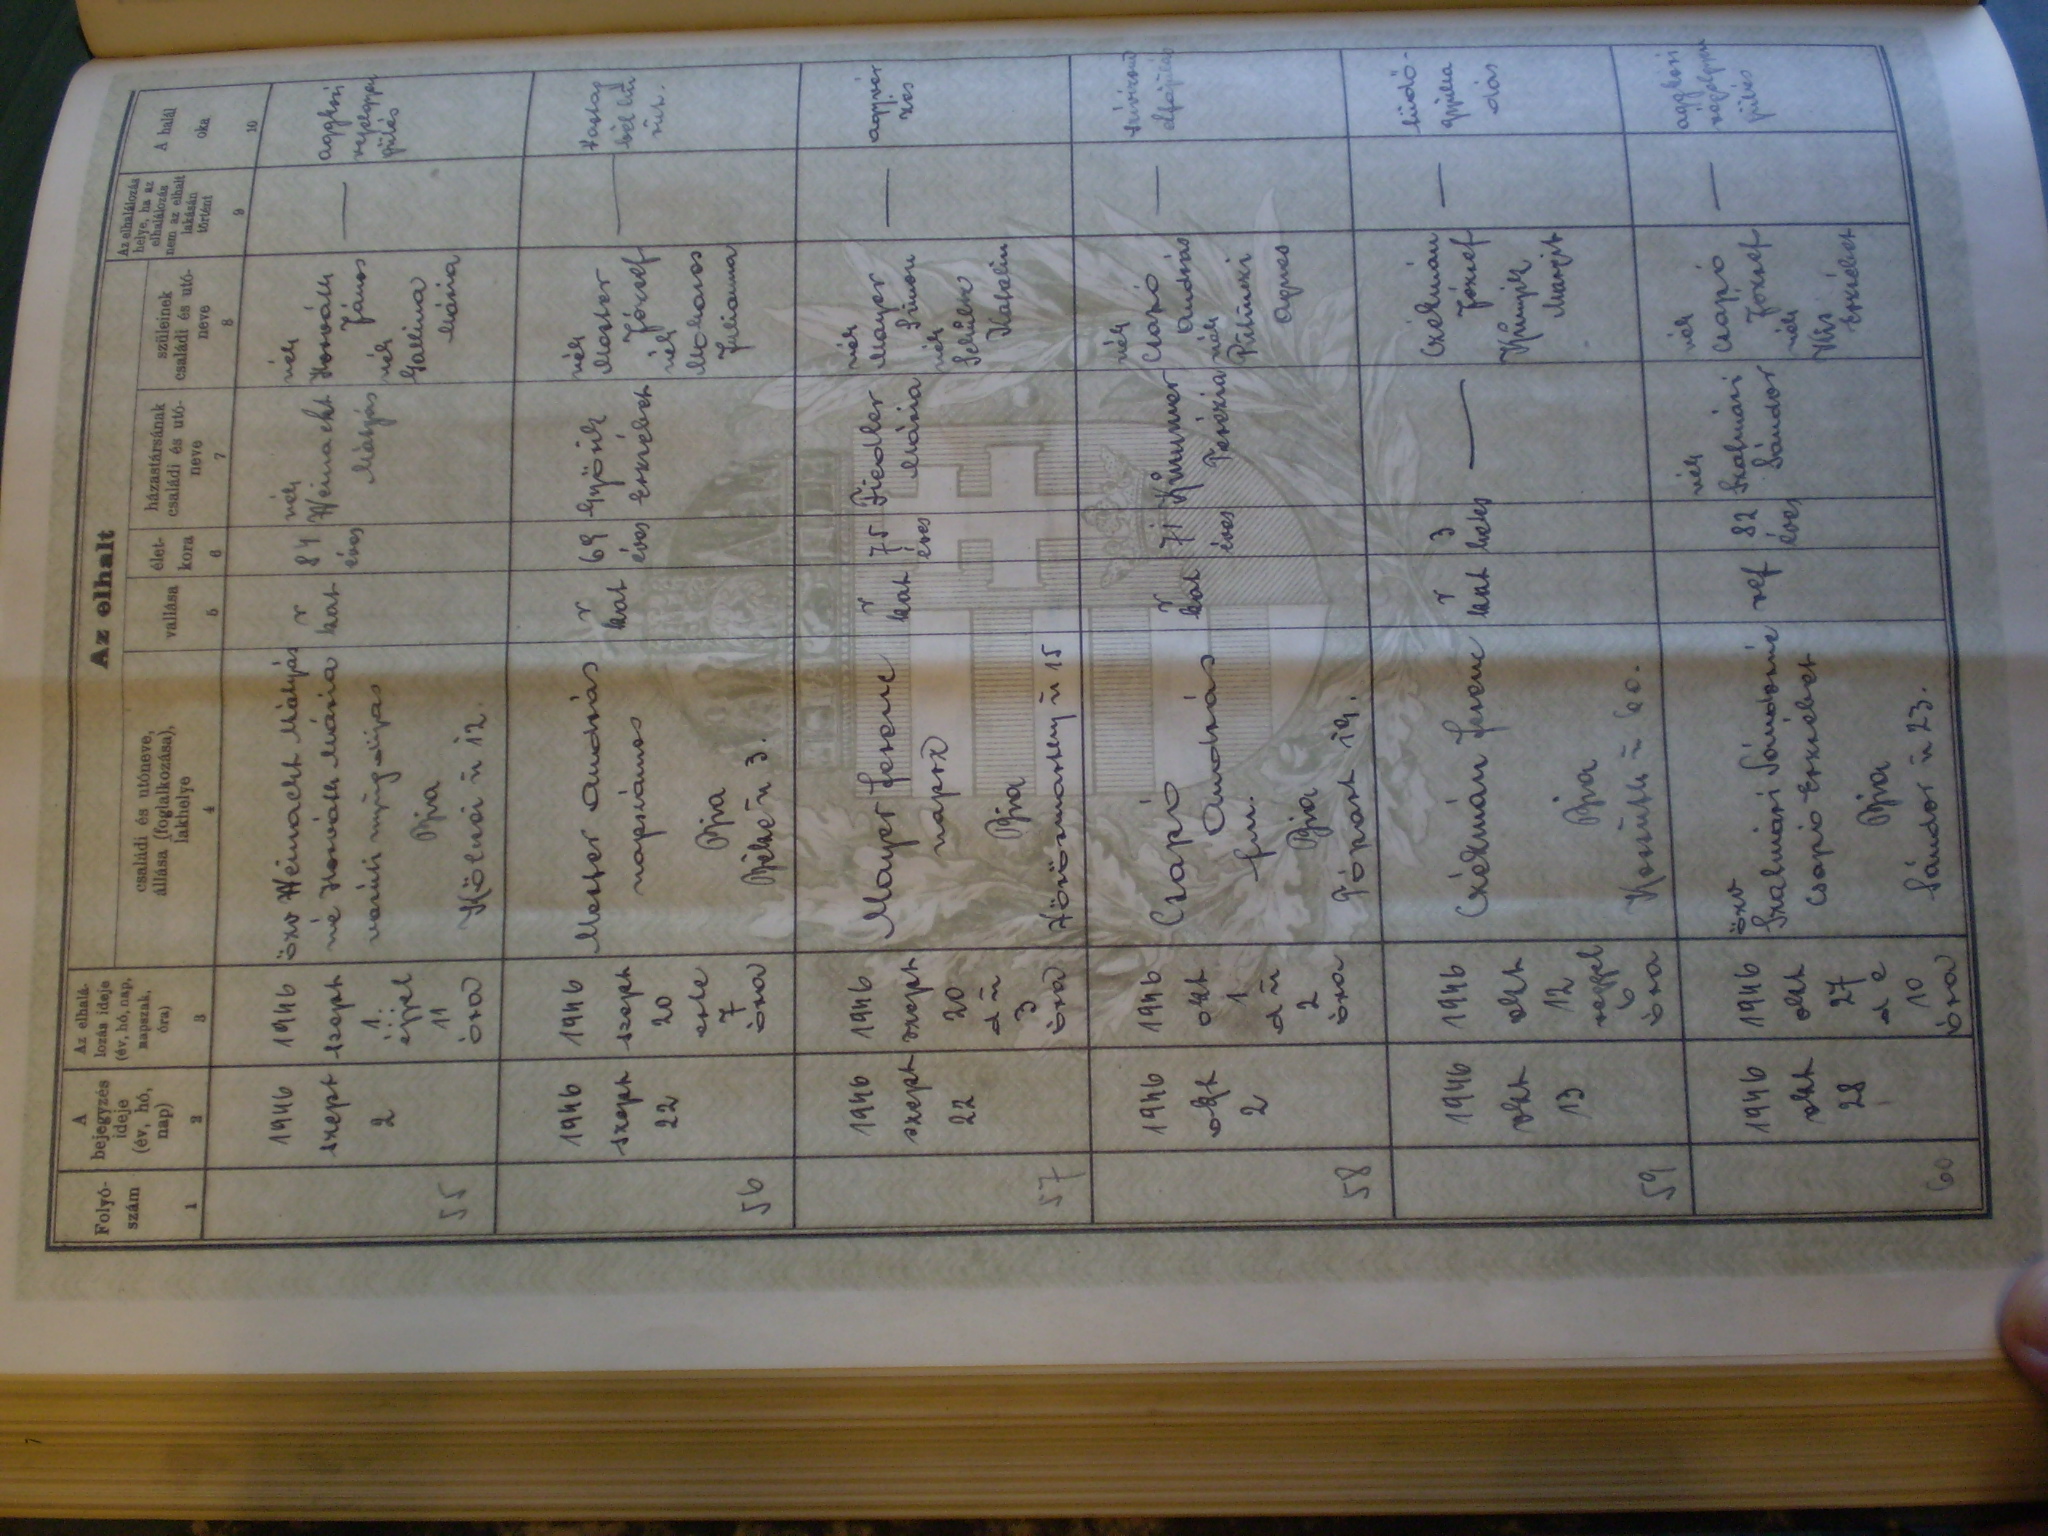 Az elhalt
Folyó-
szám
A
bejegyzés
ideje
(év, hó,
nap)
Az elhalá-
lozás ideje
(év, hó, nap,
napszak,
óra)
családi és utóneve,
állása (foglalkozása),
lakhelye
vallása
élet-
kora
házastársának
családi és utó-
neve
szüleinek
családi és utó-
neve
Az elhalálozás
helye, ha az
elhalálozás
nem az elhalt
lakásán
történt
A halál
oka
1
2
3
4
5
6
7
8
9
10
55
1946
szept
2
1946
szept
1.
éjjel
11
óra
özv Weinacht Mátyás
né Horváth Mária
Bia
12.
r
kat
84
éves
néh
Weinacht
Mátyás
néh
Horváth
János
néh
Gallina
Mária
—
aggkori
végelgyen
gülés
56
1946
szept
22
1946
szept
20
este
7
óra
András
napszámos
Bia
3.
r
kat
69
éves
Györik
Erzsébet
néh
József
néh
Mokasos
Julianna
—
57
1946
szept
22
1946
szept
20
d u
3
óra
Mayer Ferenc
napsz
Bia
Vörösmarthy u 15
r
kat
75
éves
Fiedler
Mária
néh
Mayer
Simon
néh
Katalin
—
agyvér
zés
58
1946
okt
2
1946
okt
1
d u
2
óra
Czapó
András
fm.
Bia
19.
r
kat
71
éves
Krummer
Terézia
néh
Czapó
András
néh
Ágnes
—
59
1946
okt
13
1946
okt
12
reggel
6
óra
Czékmán Ferenc
Bia
Kossuth u 60.
r
kat
3
hetes
—
Czékmán
József
Margit
—
tüdő-
gyulla
dás
60
1946
okt
28
1946
okt
27
d e
10
óra
özv
Szakmári Sándorné
Csapó Erzsébet
Bia
Sándor u 23.
ref
82
éves
néh
Szakmári
Sándor
néh
Csapó
József
néh
Kis
Erzsébet
—
aggkori
végelgyen
gülés